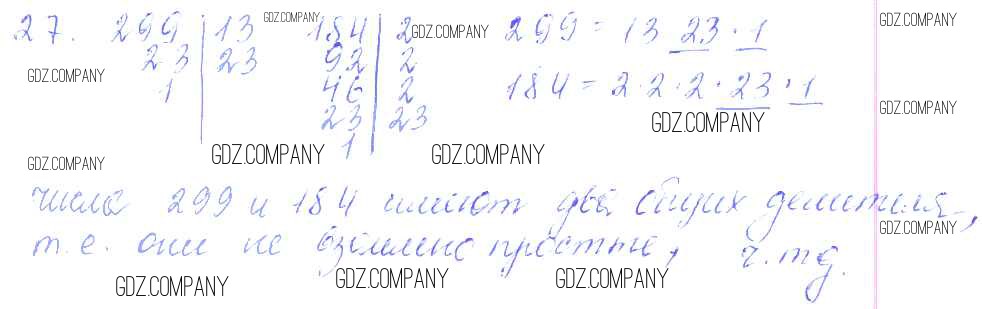 27. 299 | 13 GDZ.COMPANY 184 | 2 GDZ.COMPANY 299 = 13 23 · 1 GDZ.COMPANY
GDZ.COMPANY 23 | 23 92 | 2
1 | 46 | 2 184 = 2 · 2 · 2 · 23 · 1 GDZ.COMPANY
23 | 23 GDZ.COMPANY
GDZ.COMPANY GDZ.COMPANY 1 | GDZ.COMPANY
числа 299 и 184 имеют два общих делителя, GDZ.COMPANY
т.е. они не взаимно простые, ч.тд.
GDZ.COMPANY GDZ.COMPANY GDZ.COMPANY